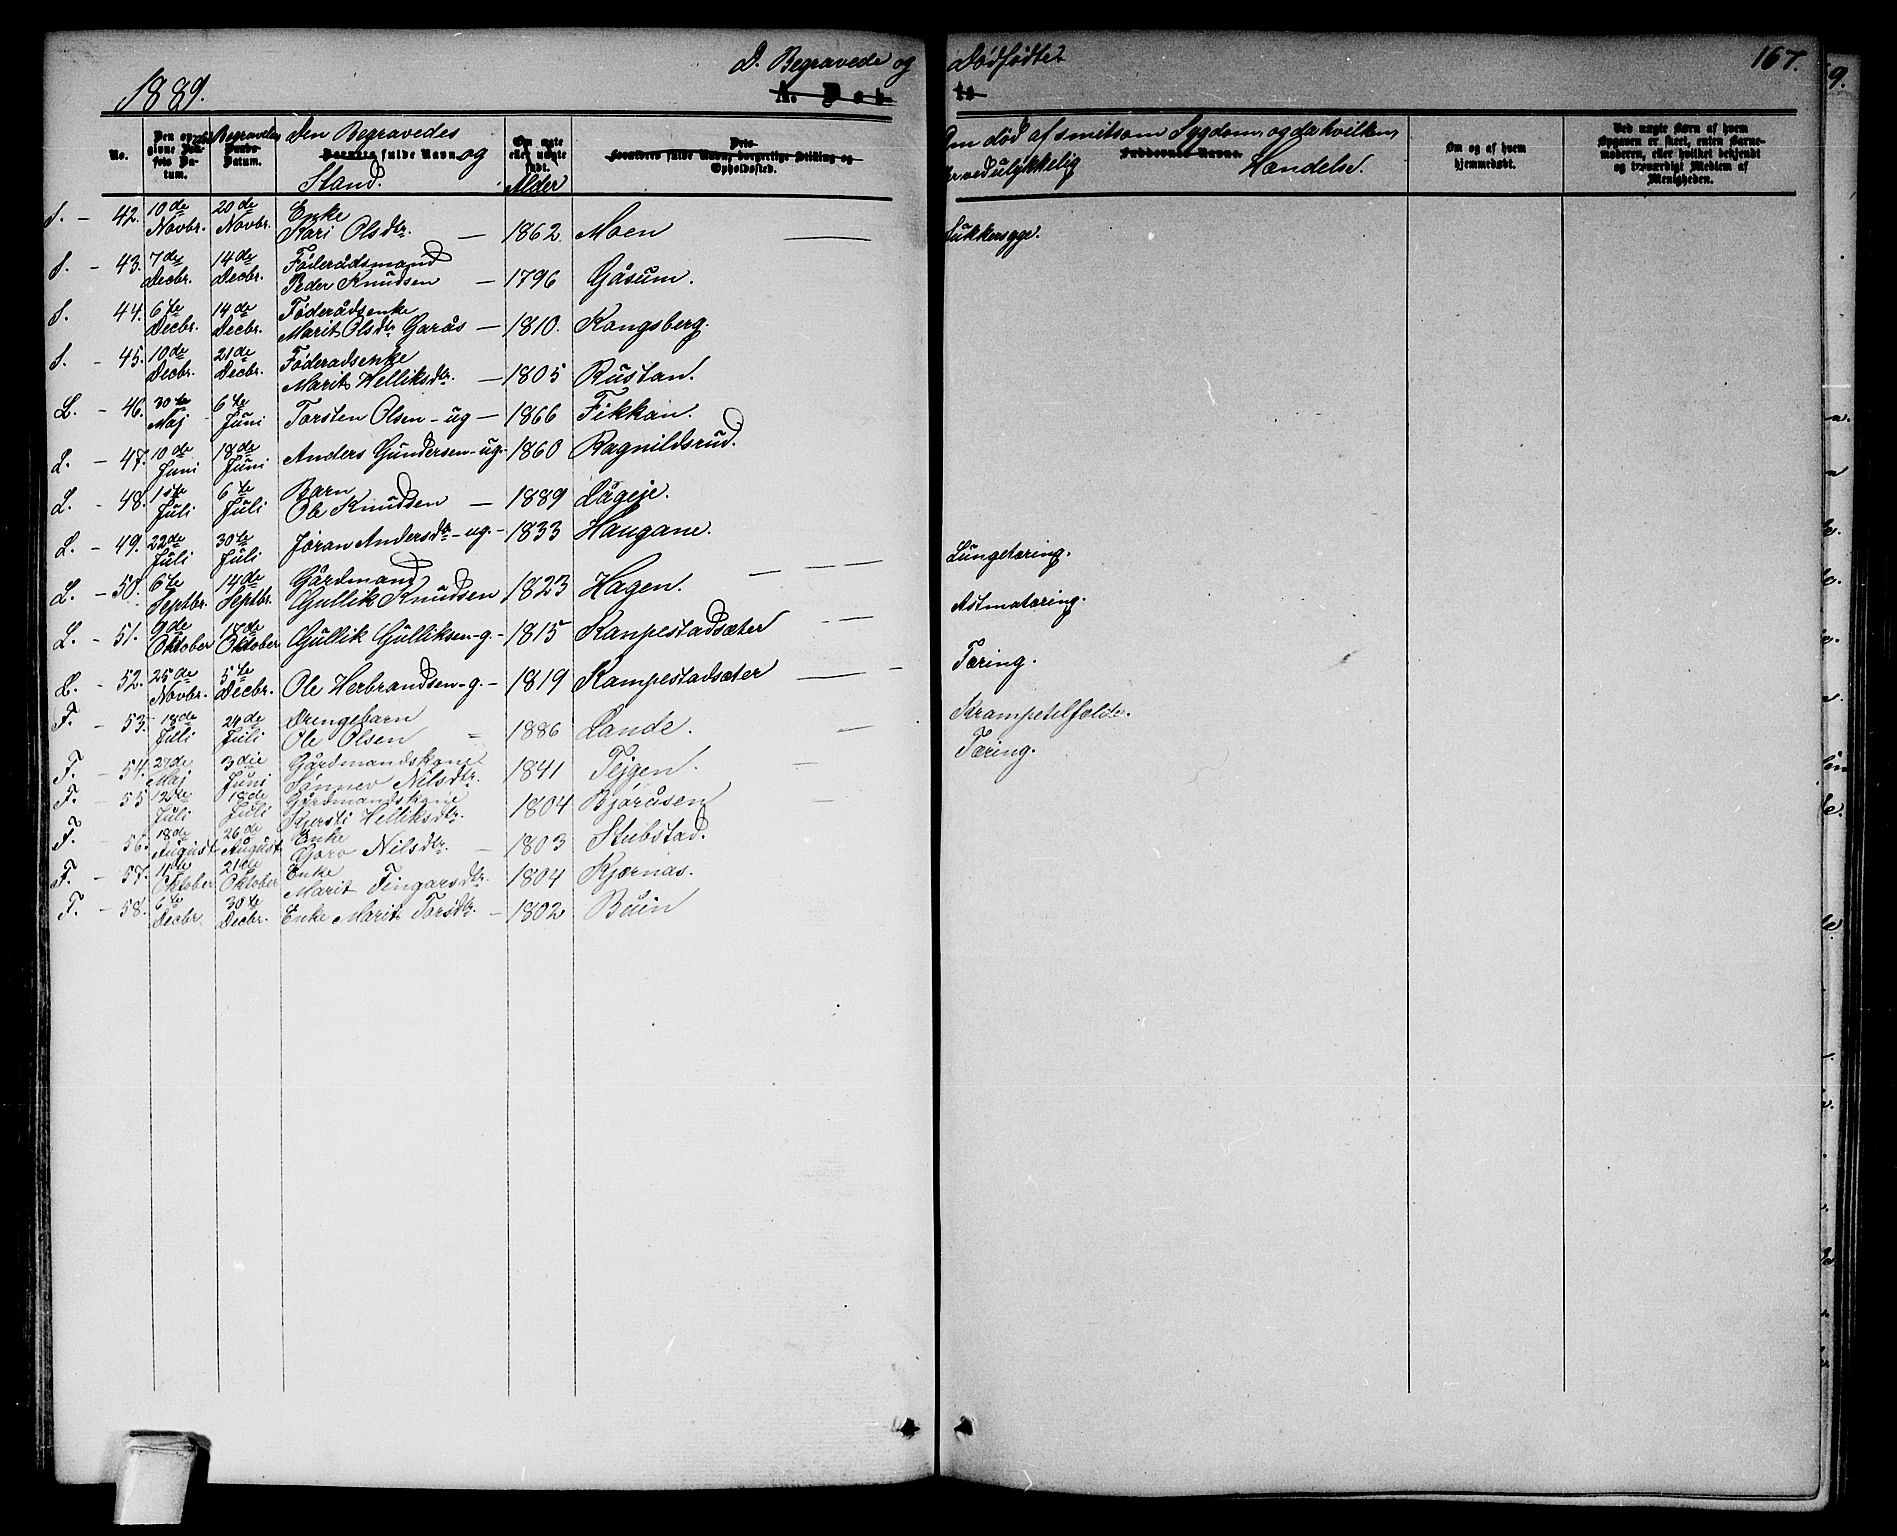 D. Begravede og Dødfødte. 167.
1889.
No. Begravelses Datum. Den Begravedes fulde Navn og Stand. Alder Opholdssted. død af smitsom Sygdom, og da hvilken, ved ulykkelig Hændelse. Om og af hvem hjemmedøbt. Ved uægte Børn af hvem Opgaven er skeet, enten Barnemoderen, eller hvilket bekjendt og troværdigt Medlem af Menigheden.
S. - 42. 10de Novbr. 20de Novbr. Enke Kari Olsdtr. - 1862. Moen Sukkersyge.
S. - 43. 7de Decbr. 14de Decbr. Føderådsmand Peder Knudsen - 1796 Gåsum.
S. 44. 6te Decbr. 14de Decbr. Føderådsenke Marit Olsdtr Garås - 1810. Kongsberg.
S. - 45. 10de Decbr. 21de Decbr. Føderadsenke Marit Helliksdtr. - 1805 Rustan.
L. - 46. 30te Maj 6te Juni Torsten Olsen - ug - 1866 Fikkan.
L. - 47. 10de Juni 18de Juni Anders Gundersen - ug. - 1860 Ragnildsrud.
L. - 48. 1ste Juli 6te Juli Barn Ole Knudsen - 1889 Lågeje.
L. - 49. 22de Juli 30te Juli Jøran Andersdtr - ug. - 1833 Haugane. Lungetæring.
L. - 50. 6te Septbr. 14de Septbr. Gårdmand Gullik Knudsen 1823 Hagen. Astmatæring.
L. - 51. 9de Oktober 17de Oktober Gullik Gulliksen - g. - 1815 Kanpestadsæter Tæring.
L. - 52. 25de Novbr. 5te Decbr. Ole Herbrandsen - g. - 1819 Kampestadsæter
F. - 53. 18de Juli 24de Juli Drengebarn Ole Olsen - 1886 Lande. Krampetilfælde.
F. - 54. 27de Maj 3die Juni Gårdmandskone Sønnev Nilsdtr. 1841 Tejgen. Tæring.
F. - 55 12te Juli 18de Juli Gårdmandskone Kjersti Helliksdtr. 1804 Bjøråsen
F. - 56. 18de August 26de August Enke Goro Nilsdtr. - 1803 Stubstad.
F. - 57. 11te Oktober 21de Oktober Enke Marit Fingarsdtr. 1804 Kjørnås.
F. - 58. 6te Decbr. 30te Decbr. Enke Marit Torsdtr. - 1802 Buin